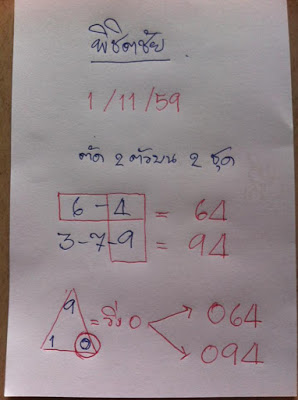 พิชิตชัย
1/11/59
ตัด 2 ตัวบน 2 ชุด
6-4 = 64
3-7-9 = 94
9
1 0 = วิ่ง 0 → 064
→ 094